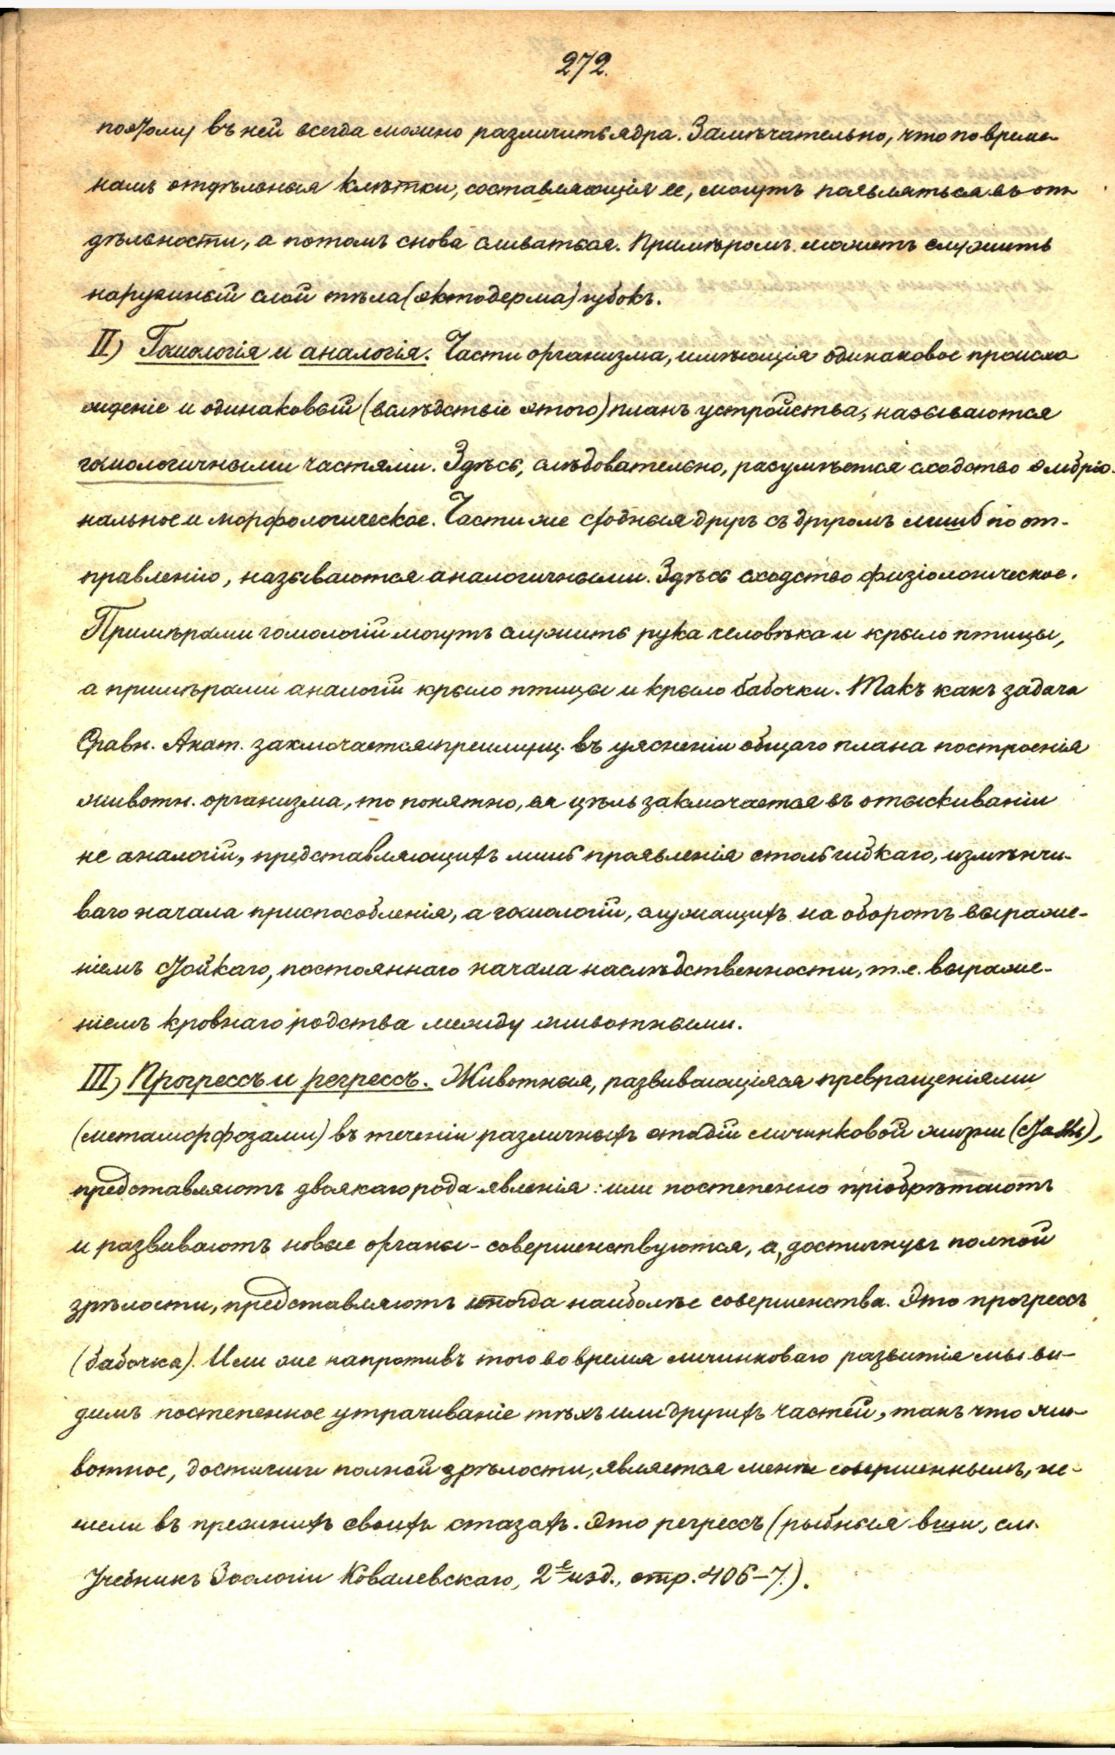 272.
поэтому въ ней всегда можно различить ядра. Замѣчательно, что по време-
намъ отдѣльныя клѣтки, составляющія ее, могутъ появляться въ от-
дѣльности, а потомъ снова сливаться. Примѣромъ можетъ служить
наружный слой тѣла (эктодерма) губокъ.
II) Гомологія и аналогія. Части организма, имѣющія одинаковое происхо
жденіе и одинаковый (вслѣдствіе этого) планъ устройства, называются
гомологичными частями. Здѣсь, слѣдовательно, разумѣется сходство эмбріо-
нальное и морфологическое. Части же сходныя другъ съ другомъ лишь по от-
правленію, называются аналогичными. Здѣсь сходство физіологическое.
Примѣрами гомологіи могутъ служить рука человѣка и крыло птицы,
а примѣрами аналогіи крыло птицы и крыло бабочки. Такъ какъ задача
Сравн. Анат. заключается преимущ. въ уясненіи общаго плана построенія
животн. организма, то понятно, ея цѣль заключается въ отыскиваніи
не аналогіи, представляющихъ лишь проявленія столь гибкаго, измѣнчи-
ваго начала приспособленія, а гомологіи, служащихъ на оборотъ выраже-
ніемъ стойкаго, постояннаго начала наслѣдственности, т.е. выраже-
ніемъ кровнаго родства между животными.
III) Прогрессъ и регрессъ. Животныя, развивающіяся превращеніями
(метаморфозами) въ теченіи различныхъ стадій личинковой жизни (стазъ),
представляютъ двоякаго рода явленія: или постепенно пріобрѣтаютъ
и развиваютъ новые органы - совершенствуются, а, достигнувъ полной
зрѣлости, представляютъ иногда наиболѣе совершенства. Это прогрессъ
(бабочка). Или же напротивъ того во время личинковаго развитія мы ви-
димъ постепенное утрачиваніе тѣхъ или другихъ частей, такъ что жи-
вотное, достигши полной зрѣлости, является менѣе совершеннымъ, не-
жели въ прежнихъ своихъ стазахъ. Это регрессъ (рыбныя вши, см.
Учебникъ Зоологіи Ковалевскаго, 2е изд., стр. 406-7.).